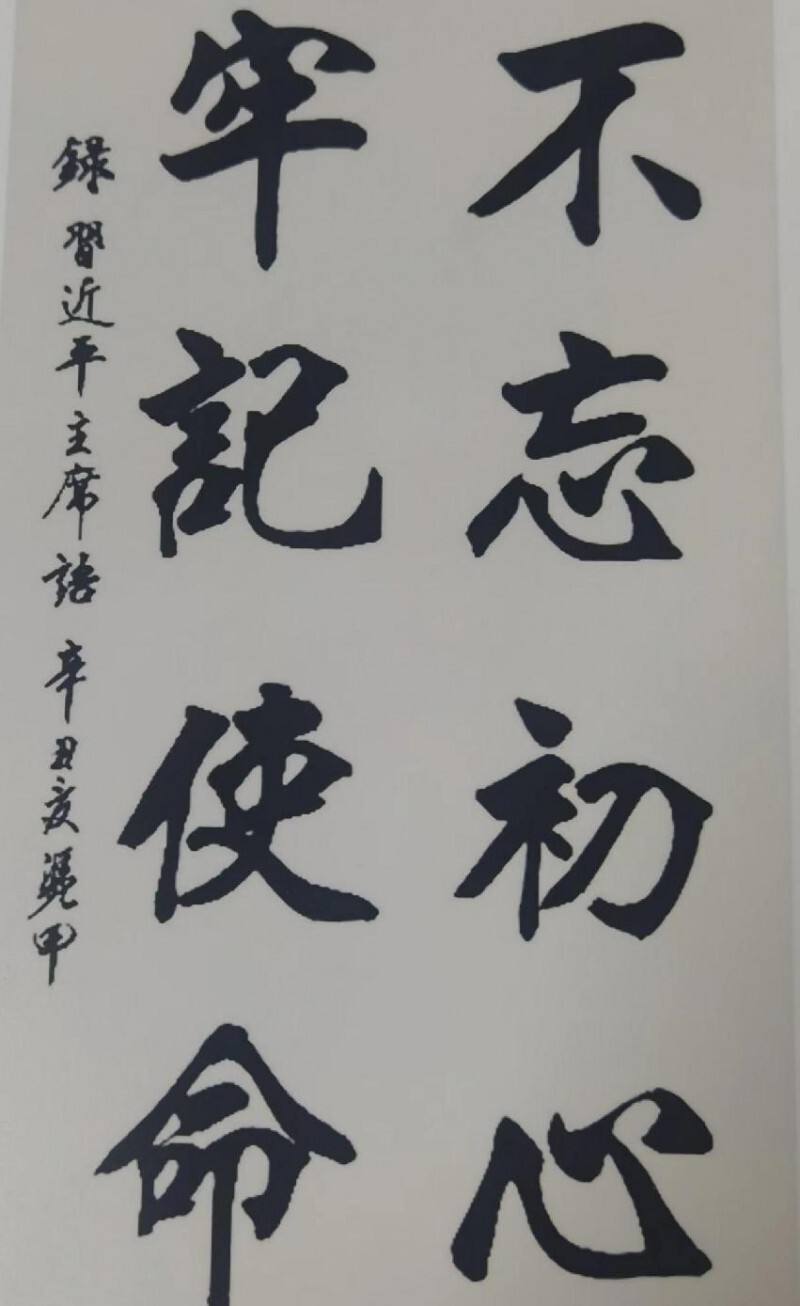 不忘初心
牢記使命
録習近平主席語 辛丑 甲